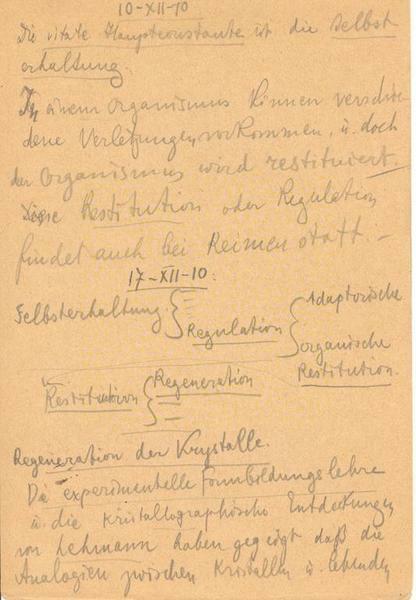 10-XII-10
Die vitale Hauptconstante ist die Selbst
erhaltung.
In einem Organismus können verschie
dene Verletzungen vorkommen, u. doch
der Organismus wird restituiert.
Diese Restitution oder Regulation
findet auch bei Keimen statt. –
17-XII-10:
Selbsterhaltung { Regulation { Adaptorische
organische
Restitution.
Restitution { Regeneration
Regeneration der Krystalle.
Die experimentelle Formbildungslehre
u. die kristallographische Entdeckungen
von Lehmann haben gezeigt daß die
Analogien zwischen Kristallen u. lebenden